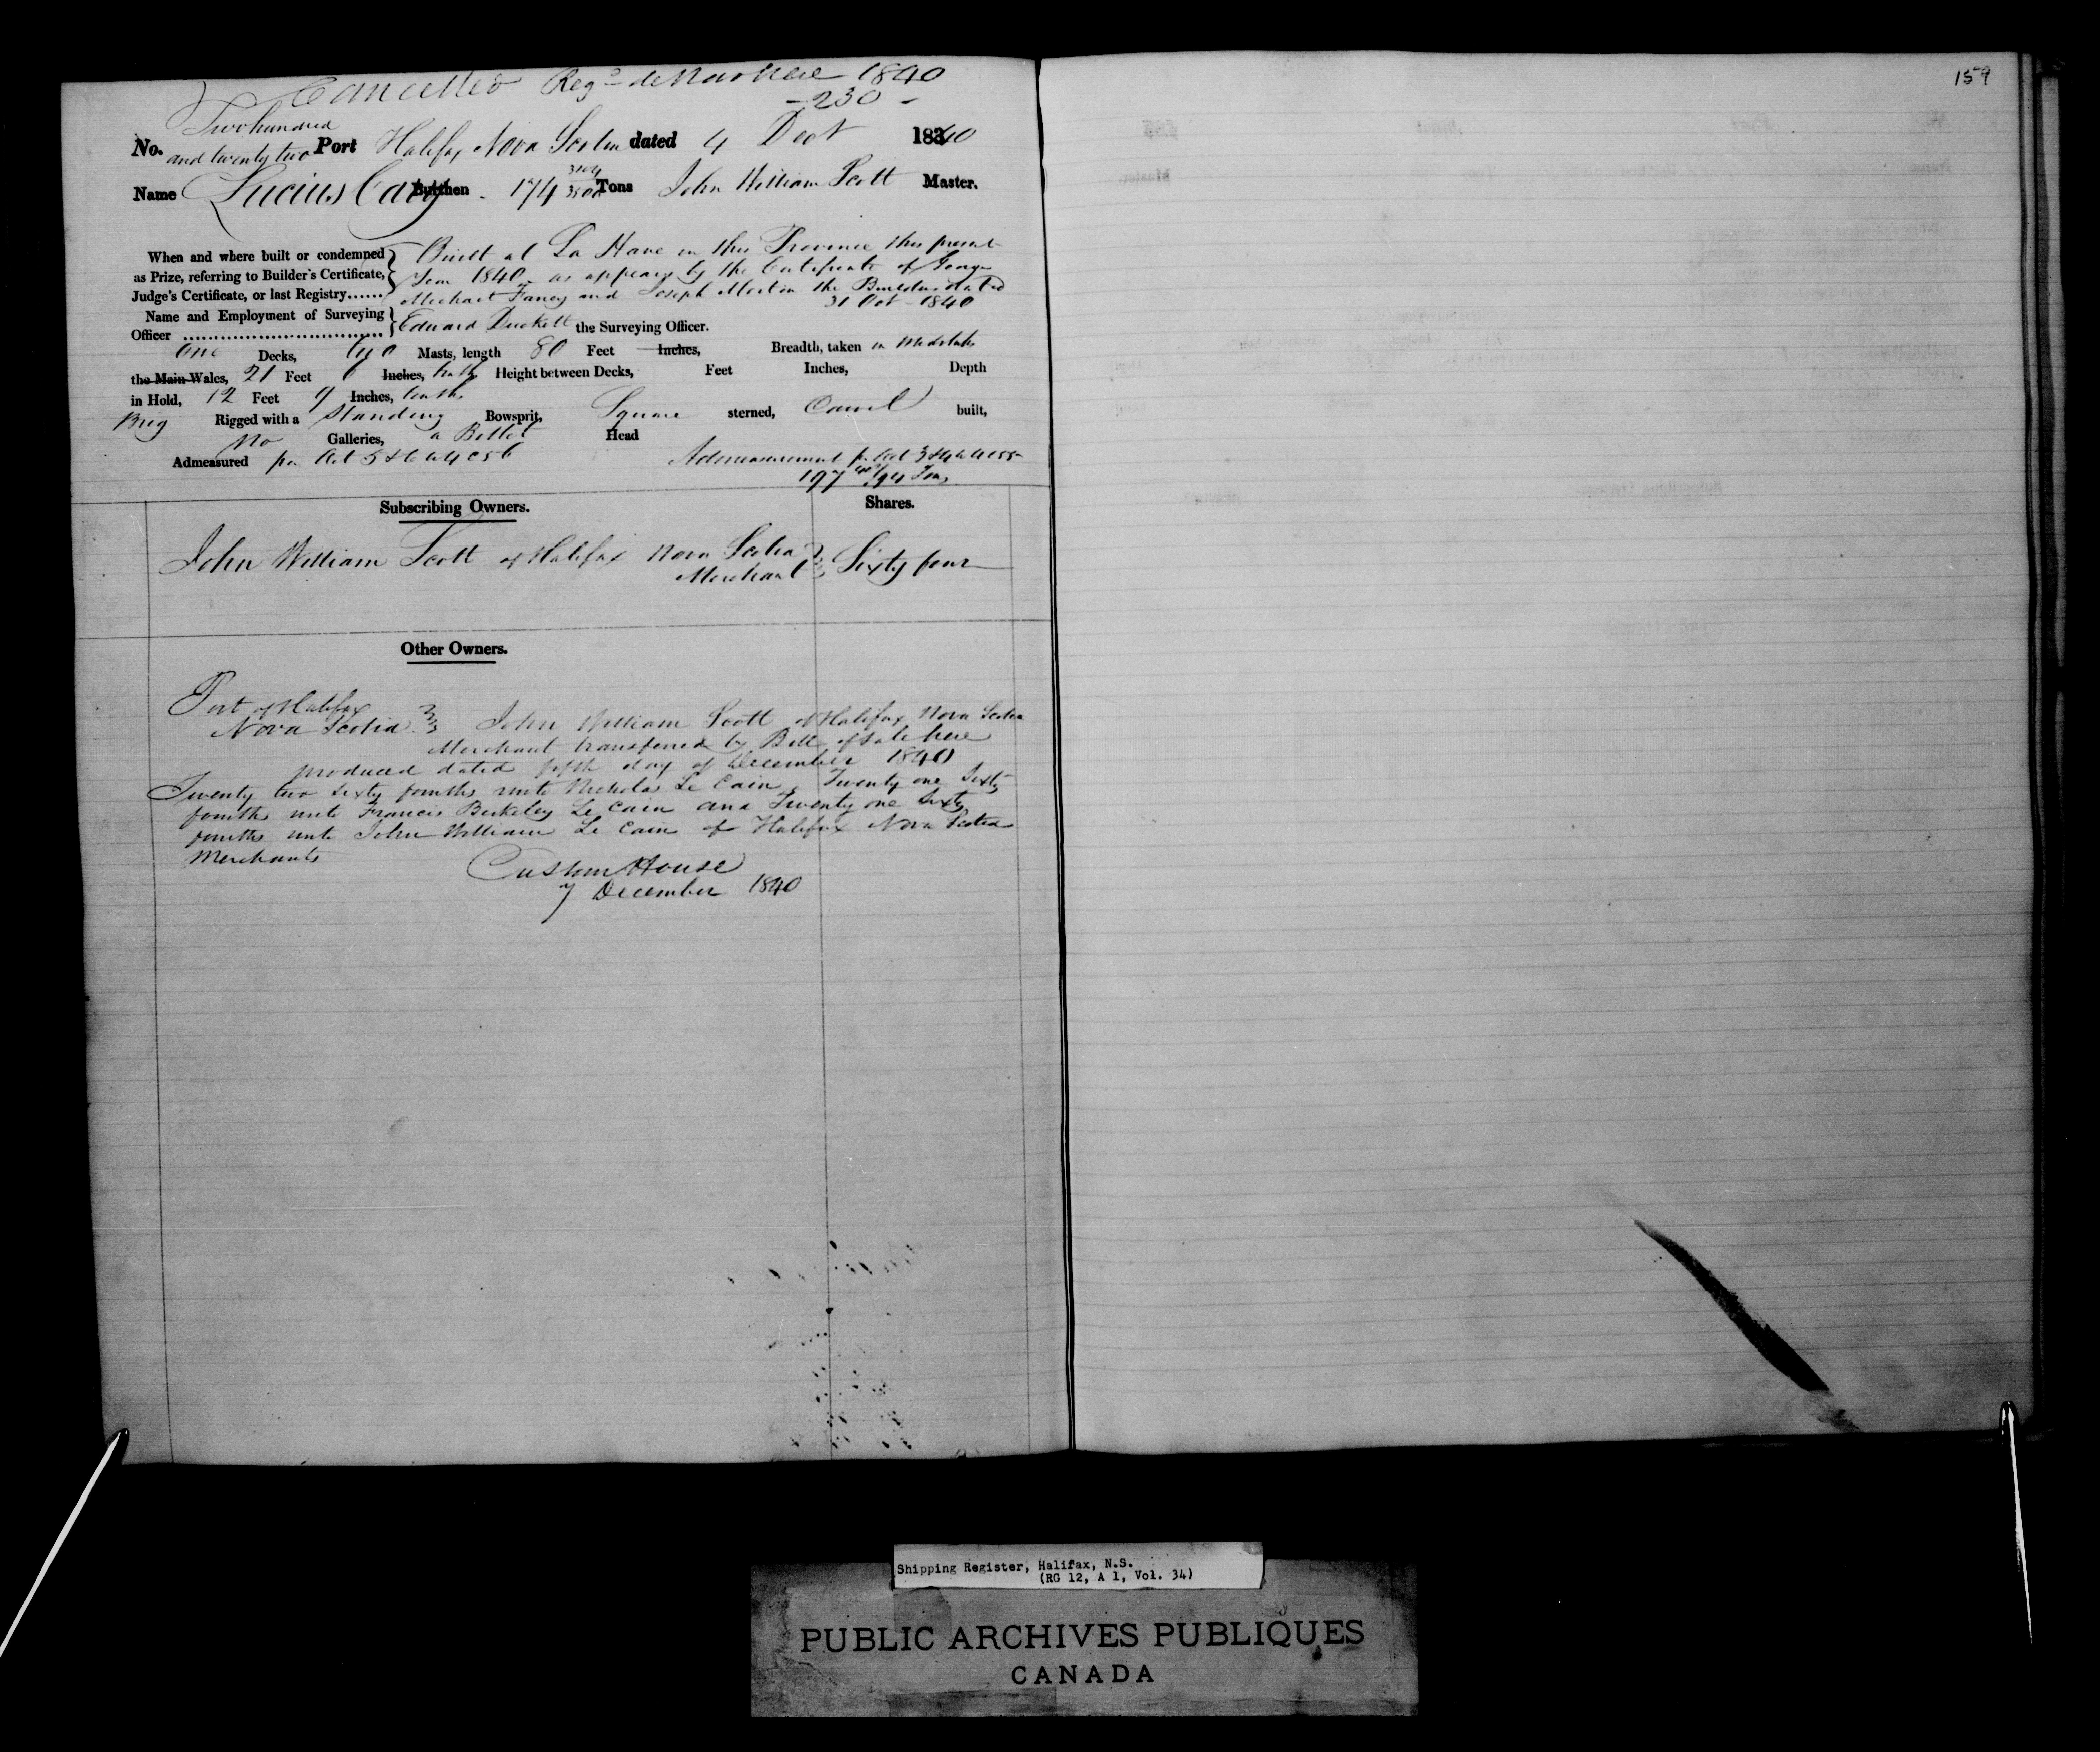 Cancelled Reg'd de Novo here 1840
- 230 -
159
Two hundred
No. and twenty two Port Halifax Nova Scotia dated 4 Dect 1840
Name Lucius Cary Burthen 174 Tons John William Scott Master.
When and where built or condemned Built at La Have in this Province this present
as Prize, referring to Builder's Certificate, Year 1840 as appears by the Certificate of George
Judge's Certificate, or last Registry...... Michael Fancy and Joseph the Builders dated
31 Oct - 1840
Name and Employment of Surveying
Officer Edward Duckett the Surveying Officer.
One Decks, two Masts, length 80 Feet Inches, Breadth, taken in Midships
the Main Wales, 21 Feet 6 Inches, tenths Height between Decks, Feet Inches, Depth
in Hold, 12 Feet 9 Inches, tenths
Brig Rigged with a Standing Bowsprit, Square sterned, Carvel built,
No Galleries, a Billet Head
Admeasured pr Act 5 & 6 W 4 C 56 Admeasurement pr Act 3 & 4 W 4 C 55
197 /94 Tons
Subscribing Owners. Shares.
John William Scott of Halifax Nova Scotia
Merchant Sixty four
Other Owners.
Port of Halifax
Nova Scotia John William Scott of Halifax Nova Scotia
Merchant transferred by Bill of Sale here
produced dated fifth day of December 1840
Twenty two sixty fourths unto Nicholas Le Cain, Twenty one Sixty
fourths unto Francis Berkeley Le Cain and Twenty one Sixty
fourths unto John William Le Cain of Halifax Nova Scotia
Merchants
Custom House
7 December 1840
Shipping Register, Halifax, N.S.
(RG 12, A 1, Vol. 34)
PUBLIC ARCHIVES PUBLIQUES
CANADA